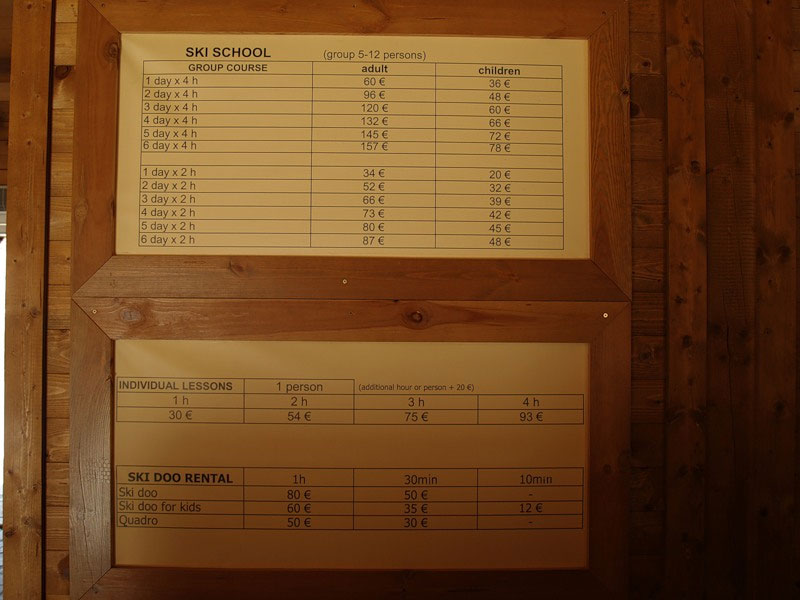 SKI SCHOOL (group 5-12 persons)
GROUP COURSE adult children
1 day x 4 h 60 € 36 €
2 day x 4 h 96 € 48 €
3 day x 4 h 120 € 60 €
4 day x 4 h 132 € 66 €
5 day x 4 h 145 € 72 €
6 day x 4 h 157 € 78 €
1 day x 2 h 34 € 20 €
2 day x 2 h 52 € 32 €
3 day x 2 h 66 € 39 €
4 day x 2 h 73 € 42 €
5 day x 2 h 80 € 45 €
6 day x 2 h 87 € 48 €
INDIVIDUAL LESSONS 1 person (additional hour or person + 20 €)
1 h 2 h 3 h 4 h
30 € 54 € 75 € 93 €
SKI DOO RENTAL 1h 30min 10min
Ski doo 80 € 50 € -
Ski doo for kids 60 € 35 € 12 €
Quadro 50 € 30 € -